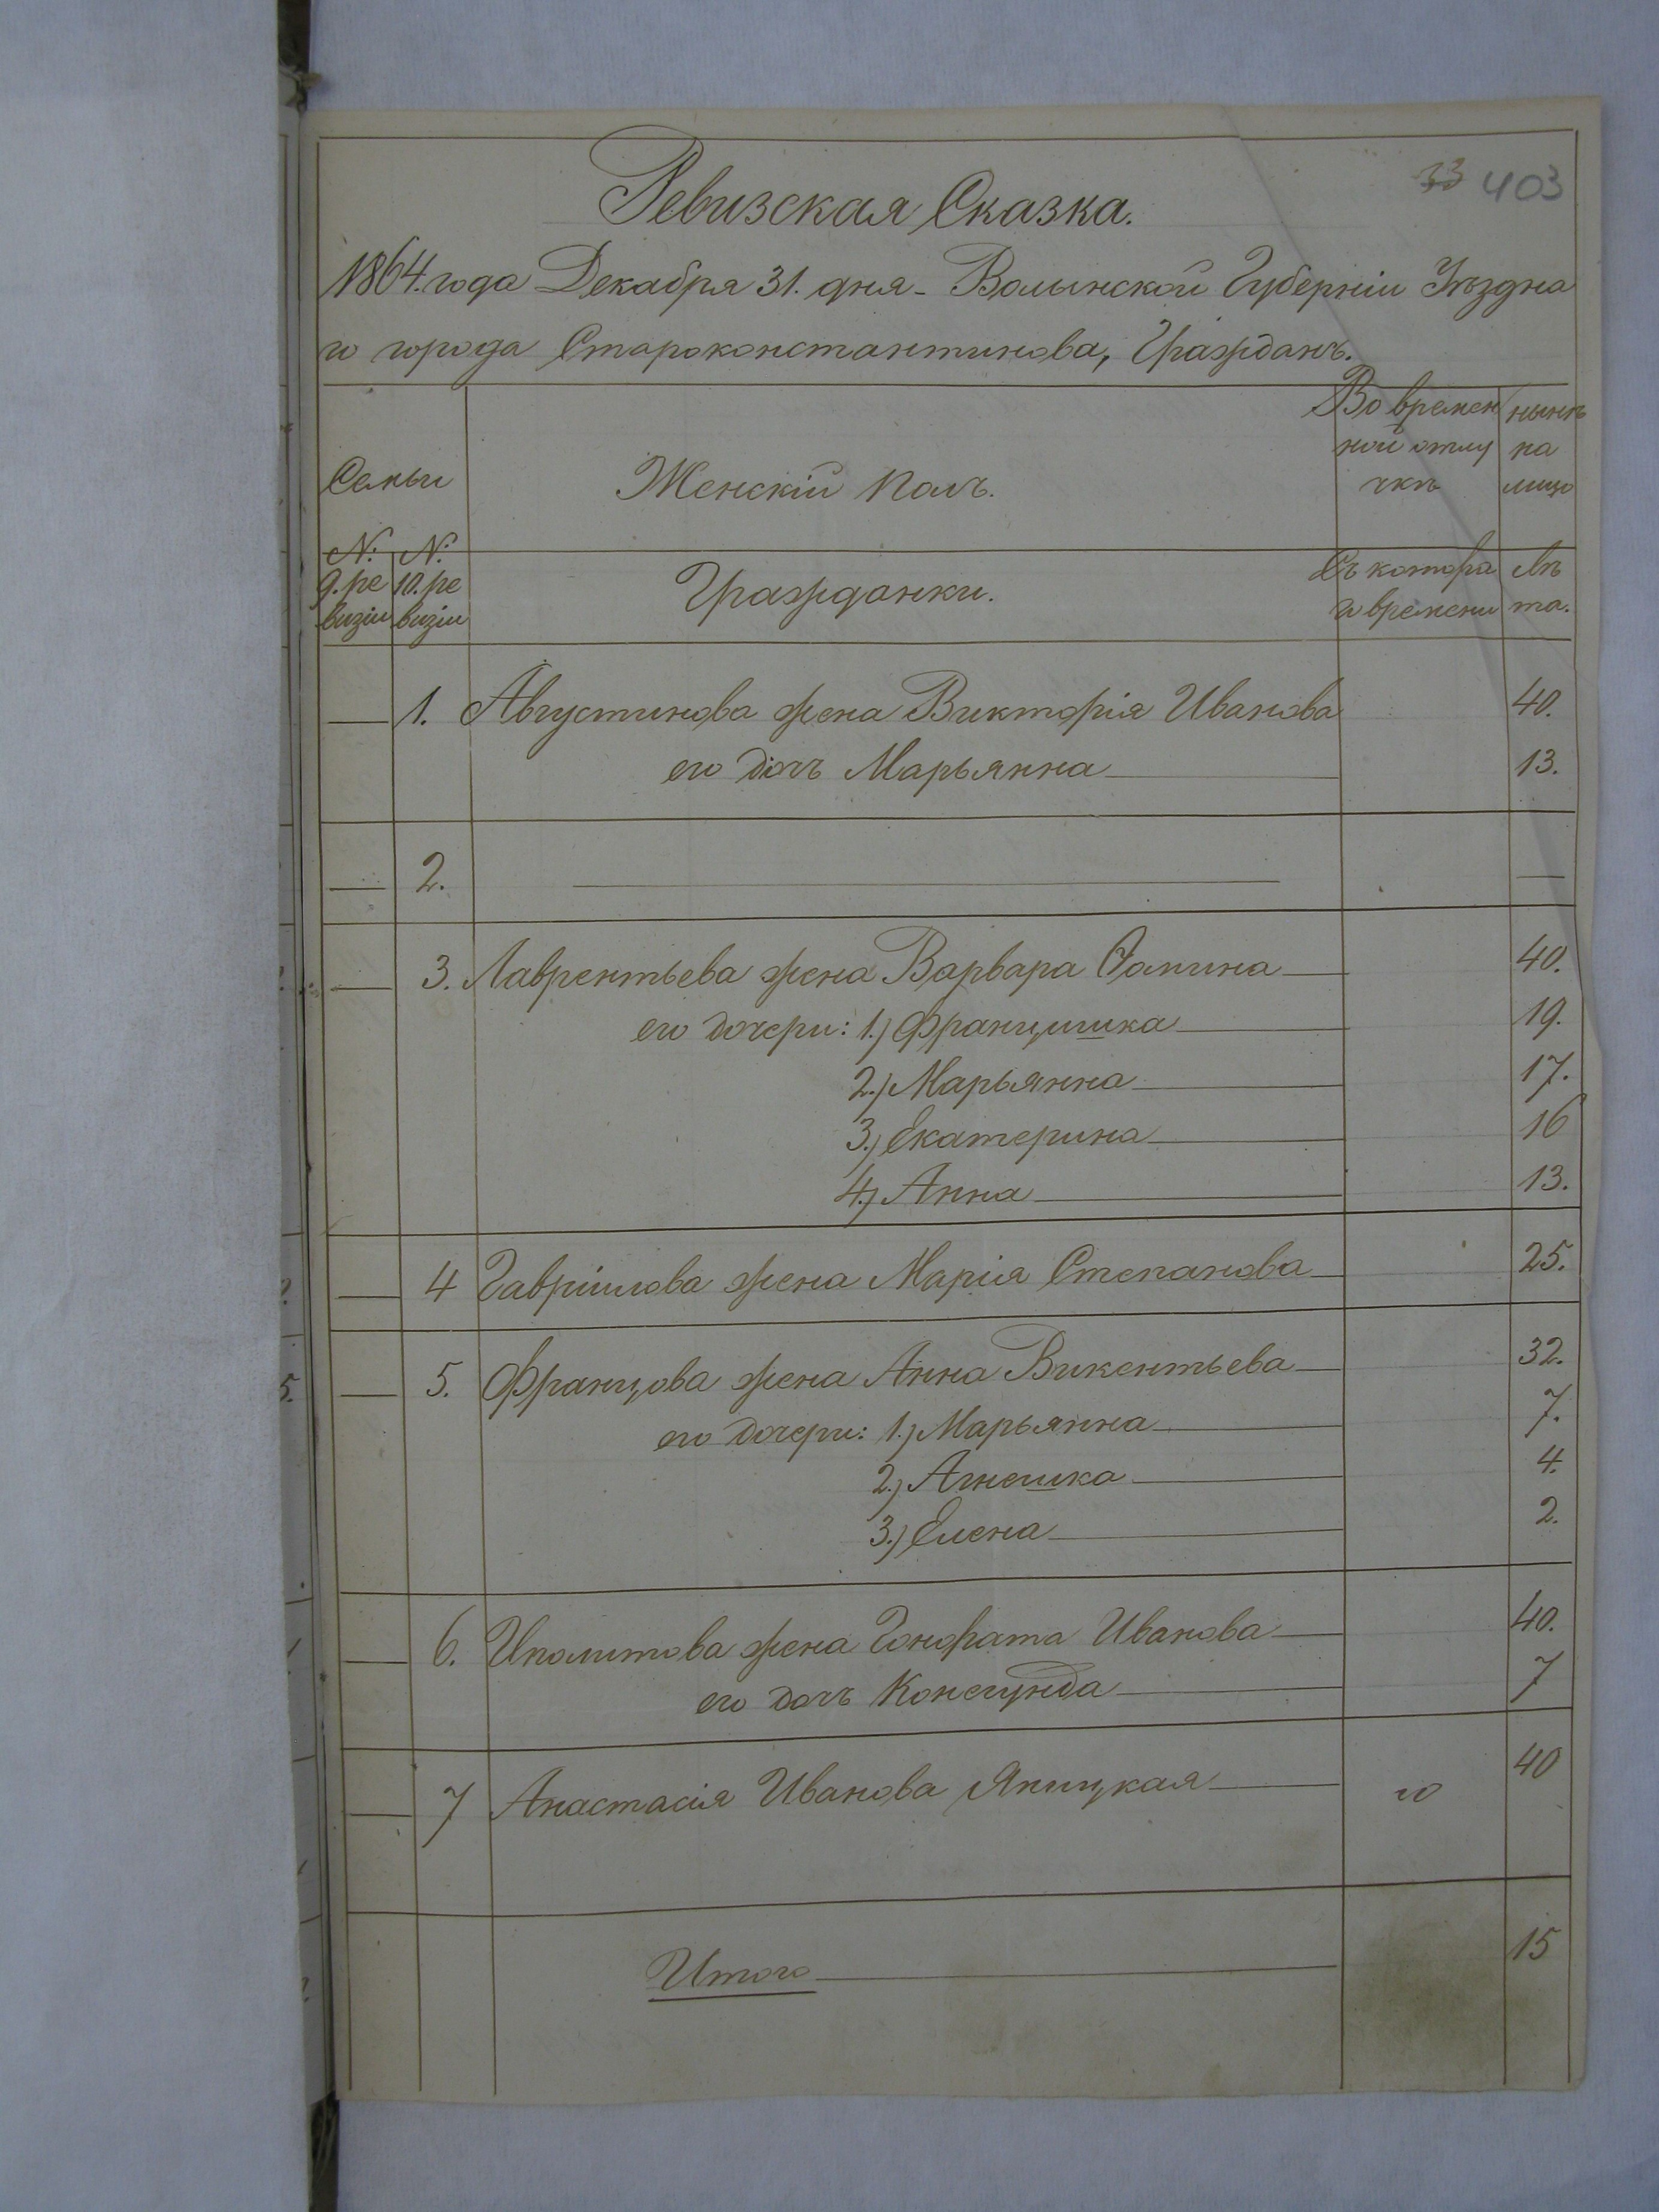 33 403
Ревизская Сказка.
1864. года Декабря 31. дня - Волынской Губерніи Уѣздна
го города Староконстантинова, Гражданъ.
Семьи
Женскій Полъ.
Во времен
ной отлу
чкѣ
нынѣ
на
лицо
№: 9. ре
визіи
№: 10. ре
визіи
Гражданки.
Съ котора
го времени
Лѣ
та.
1. Августинова жена Викторія Иванова 40.
его дочь Марьянна 13.
2.
3. Лаврентьева жена Варвара Фомина 40.
его дочери: 1.) Францишка 19.
2.) Марьянна 17.
3.) Екатерина 16
4.) Анна 13.
4 Гавріилова жена Марія Степанова 25.
5. Францова жена Анна Викентьева 32.
его дочери: 1.) Марьянна 7.
2.) Агнешка 4.
3.) Елена 2.
6. Иполитова жена Гонората Иванова 40.
его дочь Конегунда 7
7 Анастасія Иванова Яницкая 40
Итого 15